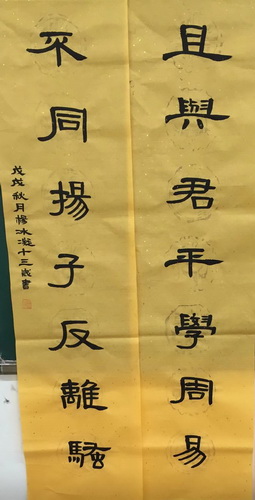 且與君平學周易
不同揚子反離騷
戊戌秋月楊冰凝十三歲書